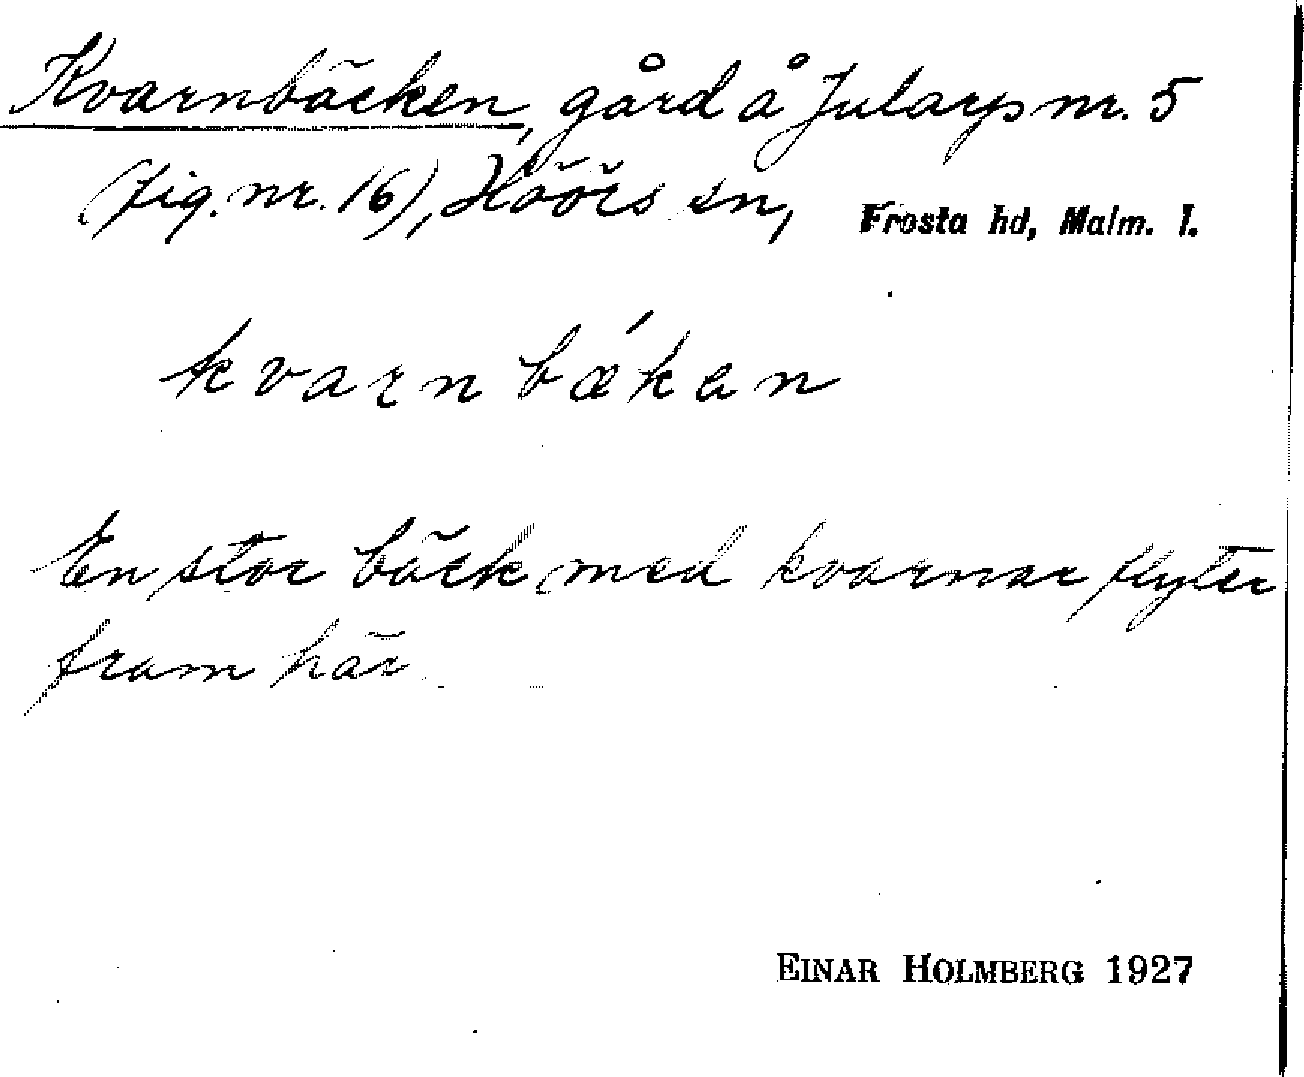 Kvarnbäcken, gård å Jularp nr. 5
(fig. nr. 16), Höörs sn, Frosta hd, Malm. l.
kvarnbǽkan
En stor bäck med kvarnar flyter
fram här
EINAR HOLMBERG 1927